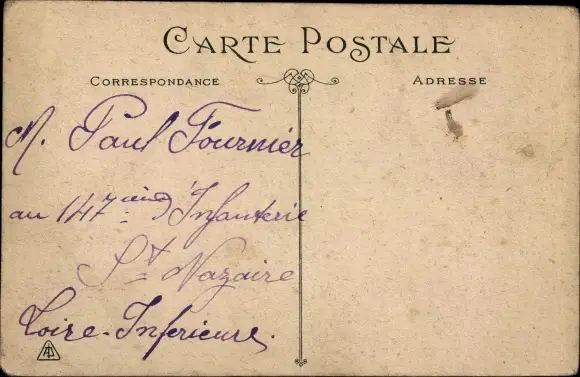 CARTE POSTALE
CORRESPONDANCE
ADRESSE
M. Paul Fournier
au 147ième d'Infanterie
St Nazaire
Loire-Inférieure.